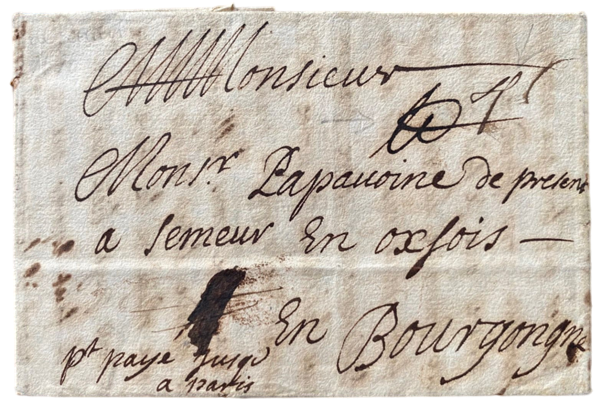 Monsieur
Monsr. Papauoine de present
a Semeur En oxsois —
En Bourgongne
pt paye Jusqu
a paris